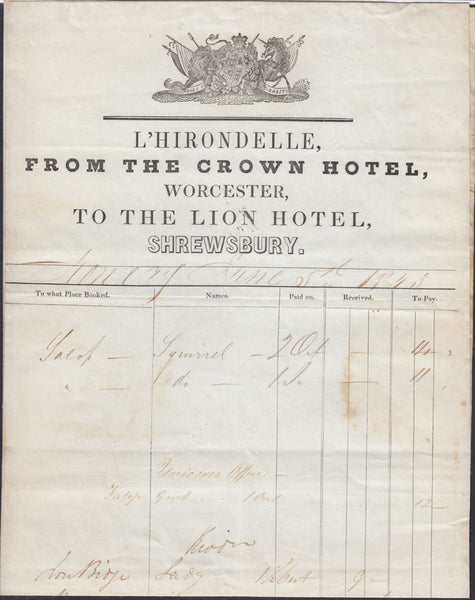 L'HIRONDELLE,
FROM THE CROWN HOTEL,
WORCESTER,
TO THE LION HOTEL,
SHREWSBURY.
June 5th 1843
To what Place Booked. Names. Paid on. Received. To Pay.
Salop — Squirrel — 2 Out — 40 "
" — 1 do — 1 In — 11 "
Unicorn Office —
Guard 1 Out 12 —
Iron Bridge Lady 1 Out 9 —